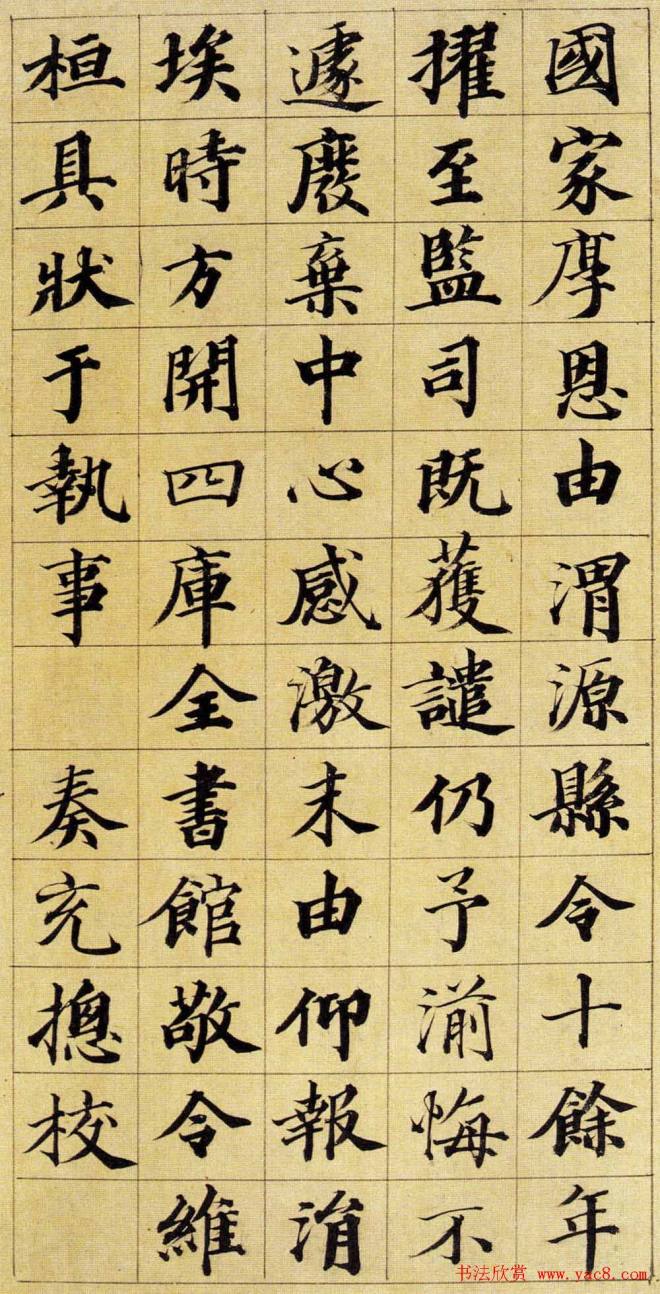 國家厚恩由渭源縣令十餘年
擢至監司既獲譴仍予湔悔不
遽廢棄中心感激末由仰報涓
埃時方開四庫全書館敬令維
桓具狀于執事 奏充摠校
书法欣赏 www.yac8.com